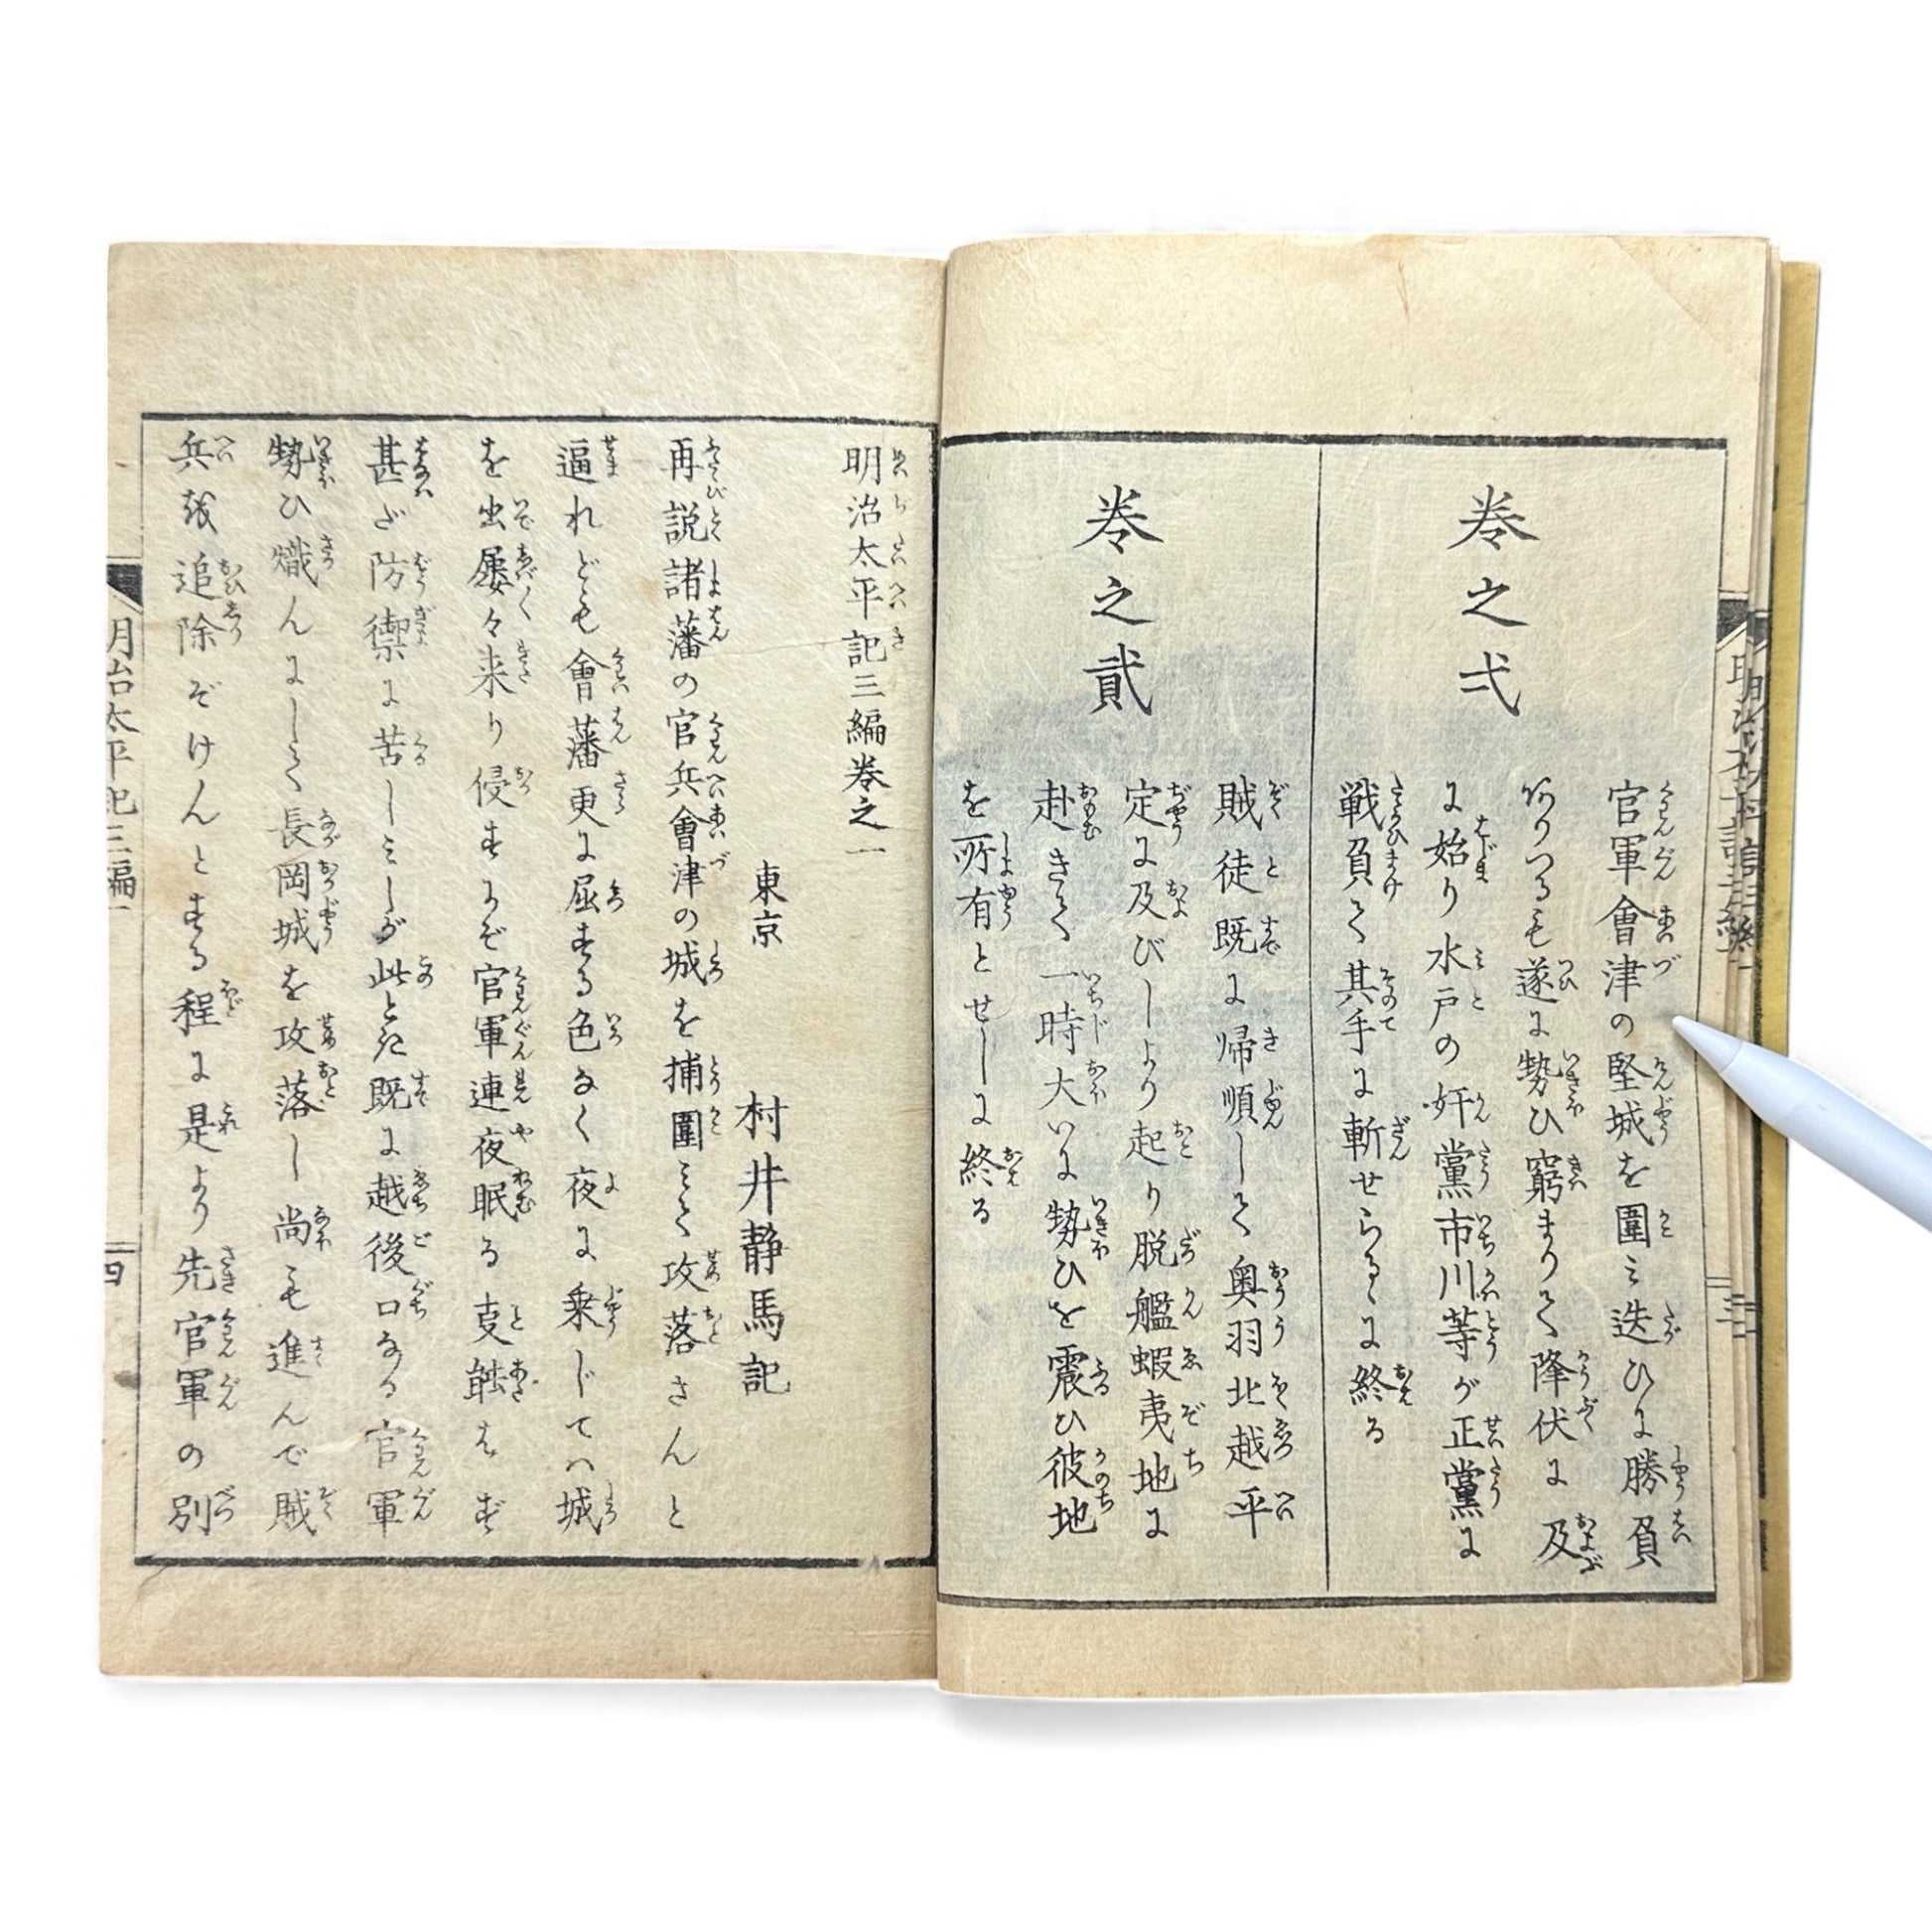 巻之弌
官軍會津の堅城を圍ミ迭ひに勝負
ありつるも遂に勢ひ窮まりて降伏に及
に始り水戸の奸黨市川等が正黨に
戦負て其手に斬せらるゝに終る
巻之貳
賊徒既に帰順して奥羽北越平
定に及びしより起り脱艦蝦夷地に
赴きて一時大いに勢ひを震ひ彼地
を所有とせしに終る
明治太平記三編巻之一
東京 村井静馬記
再説諸藩の官兵會津の城を捕圍ミて攻落さんと
逼れども會藩更に屈する色なく夜に乗じてハ城
を出屡々来り侵すにぞ官軍連夜眠る支能はず
甚だ防禦に苦しミしが此とき既に越後口なる官軍
勢ひ熾んにして長岡城を攻落し尚も進んで賊
兵を追除ぞけんとする程に是より先官軍の別
明治太平記三編一
四